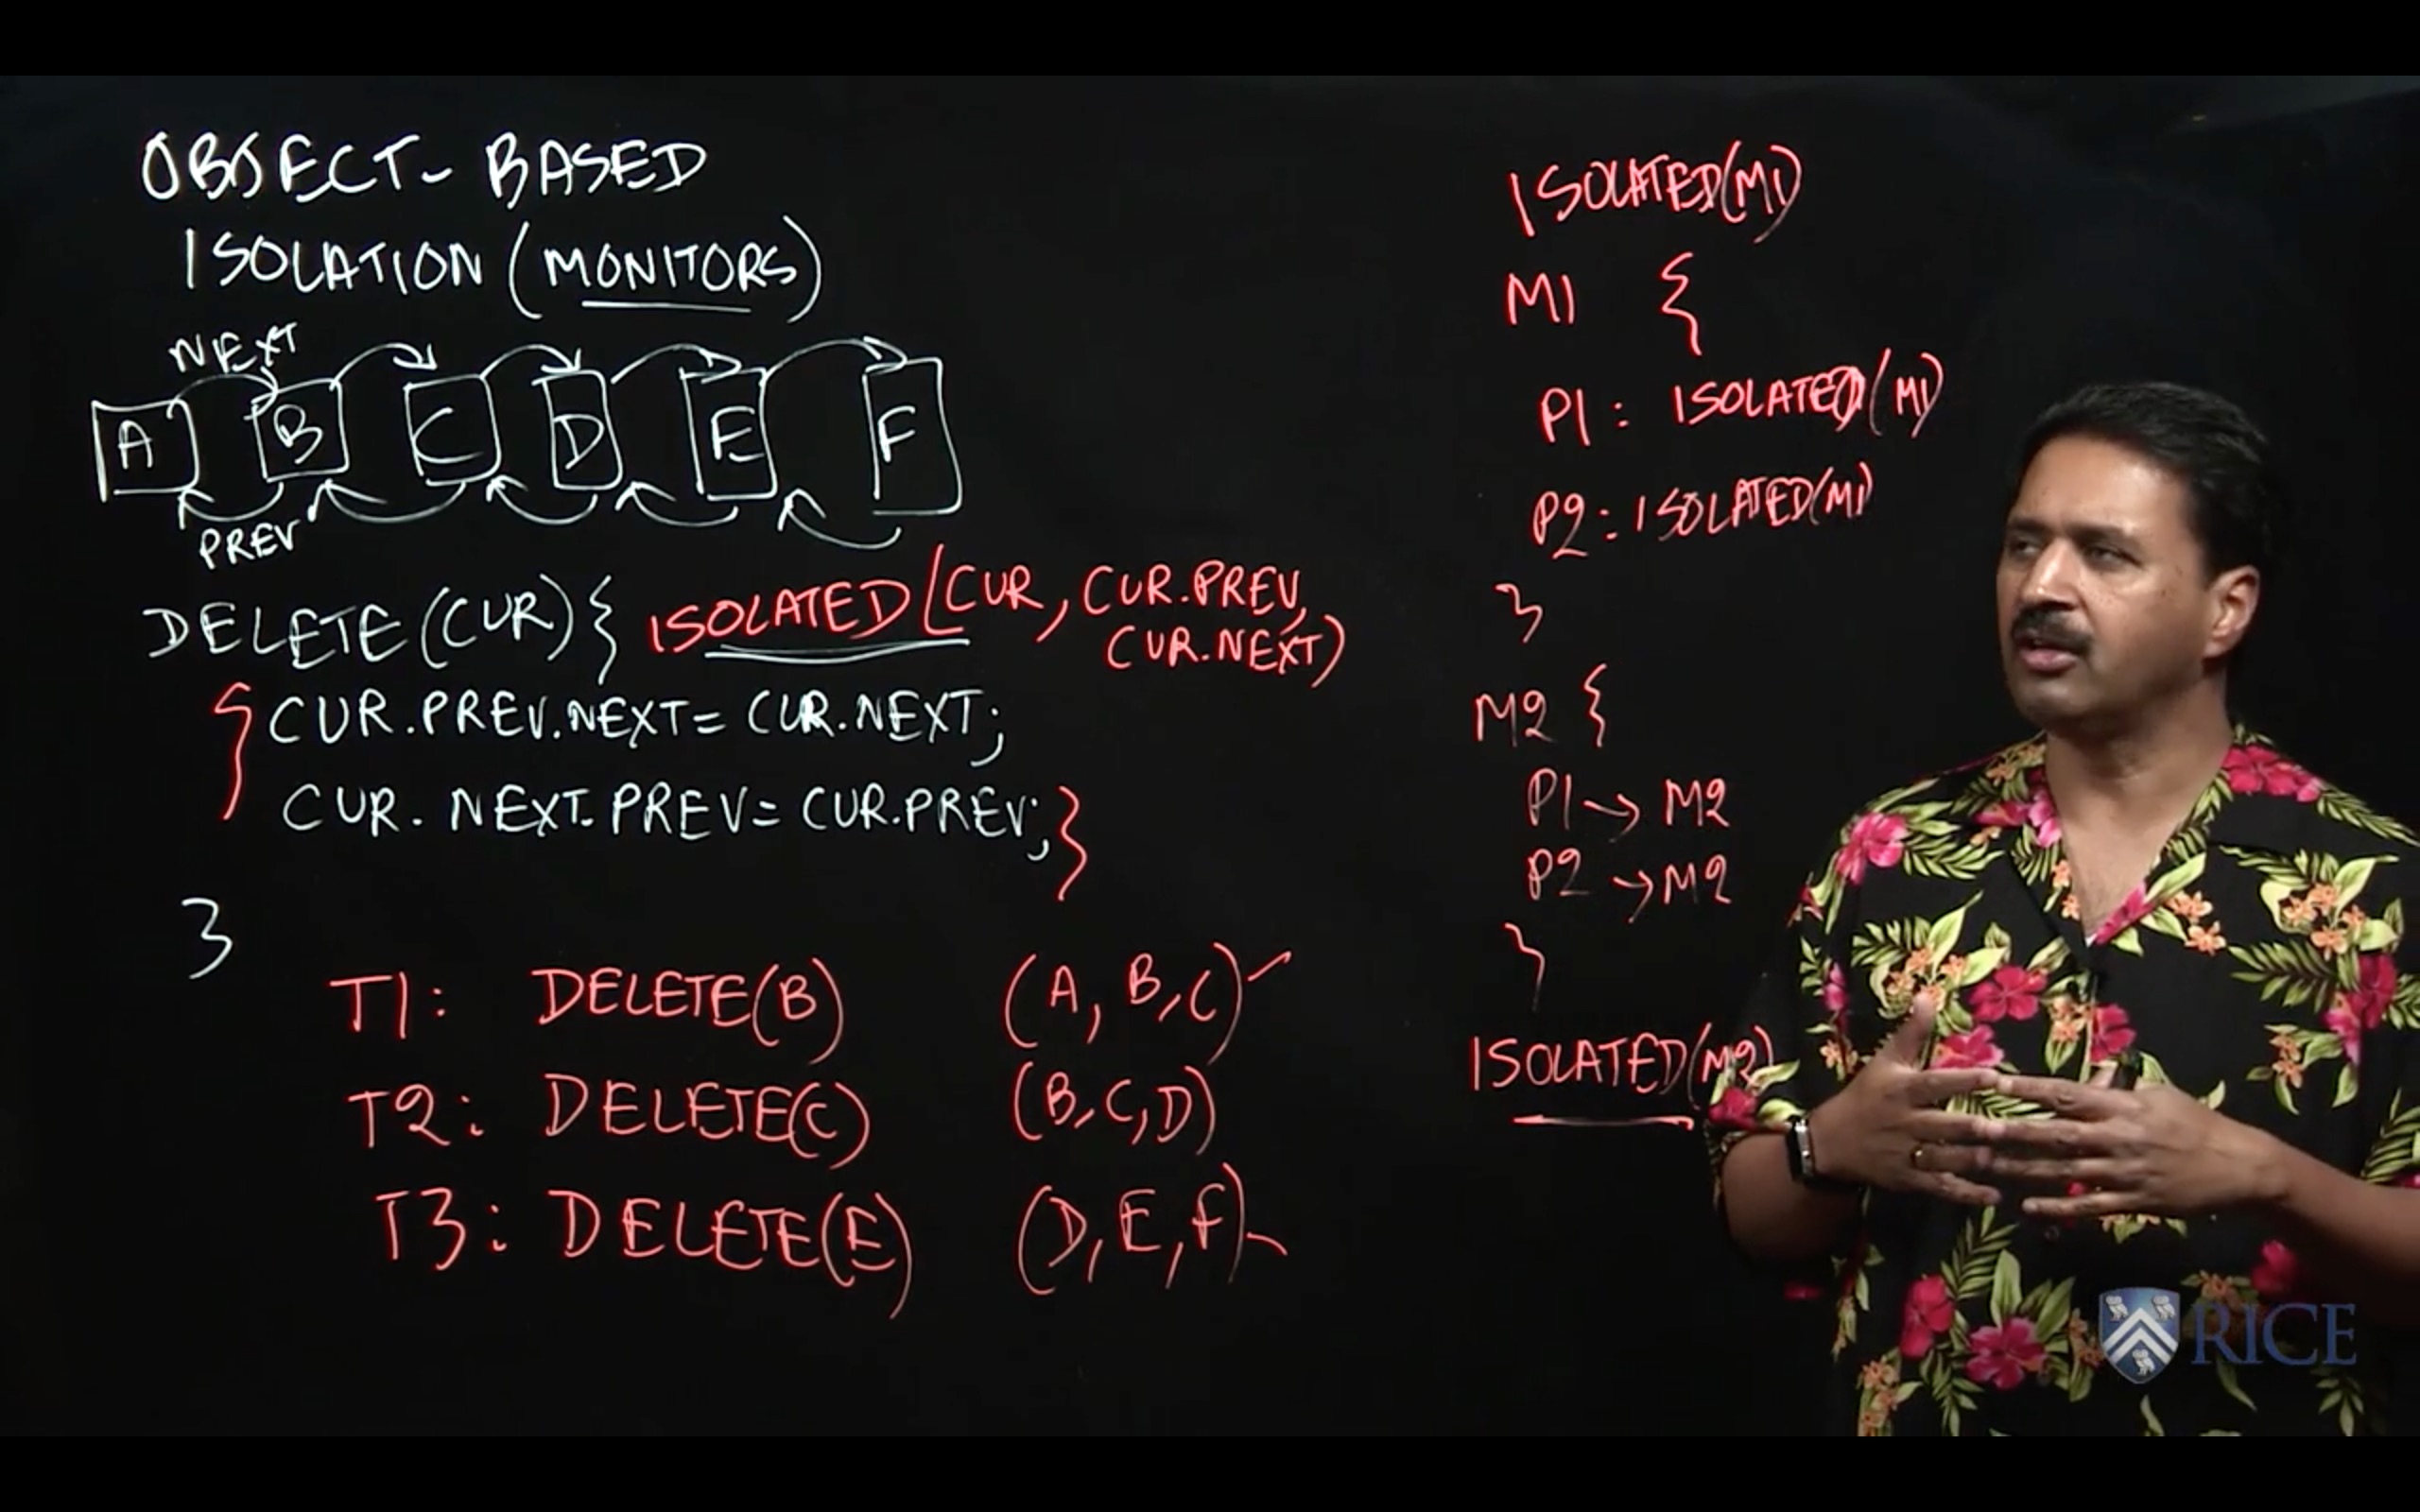 OBJECT-BASED
ISOLATION (MONITORS)
NEXT
A B C D E F
PREV
DELETE(CUR){ ISOLATED(CUR, CUR.PREV,
CUR.NEXT)
{ CUR.PREV.NEXT = CUR.NEXT;
CUR.NEXT.PREV = CUR.PREV; }
}
T1: DELETE(B) (A, B, C)
T2: DELETE(C) (B, C, D)
T3: DELETE(E) (D, E, F)
ISOLATED(M1)
M1 {
P1: ISOLATED(M1)
P2: ISOLATED(M1)
}
M2 {
P1 → M2
P2 → M2
}
ISOLATED(M2)
RICE